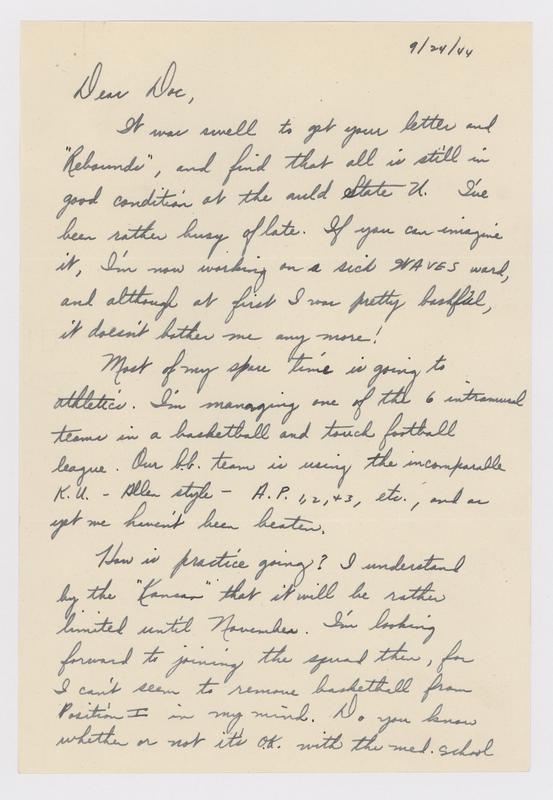 9/24/44
Dear Doc,
It was swell to get your letter and
"Rebounds", and find that all is still in
good condition at the auld State U. I've
been rather busy of late. If you can imagine
it, I'm now working on a sick WAVES ward,
and although at first I was pretty bashful,
it doesn't bother me any more!
Most of my spare time is going to
athletics. I'm managing one of the 6 intramural
teams in a basketball and touch football
league. Our b.b. team is using the incomparable
K.U. - Allen style - A.P. 1, 2, +3, etc., and as
yet we haven't been beaten.
How is practice going? I understand
by the "Kansan" that it will be rather
limited until November. I'm looking
forward to joining the squad then, for
I can't seem to remove basketball from
Position I in my mind. Do you know
whether or not it's O.K. with the med. school